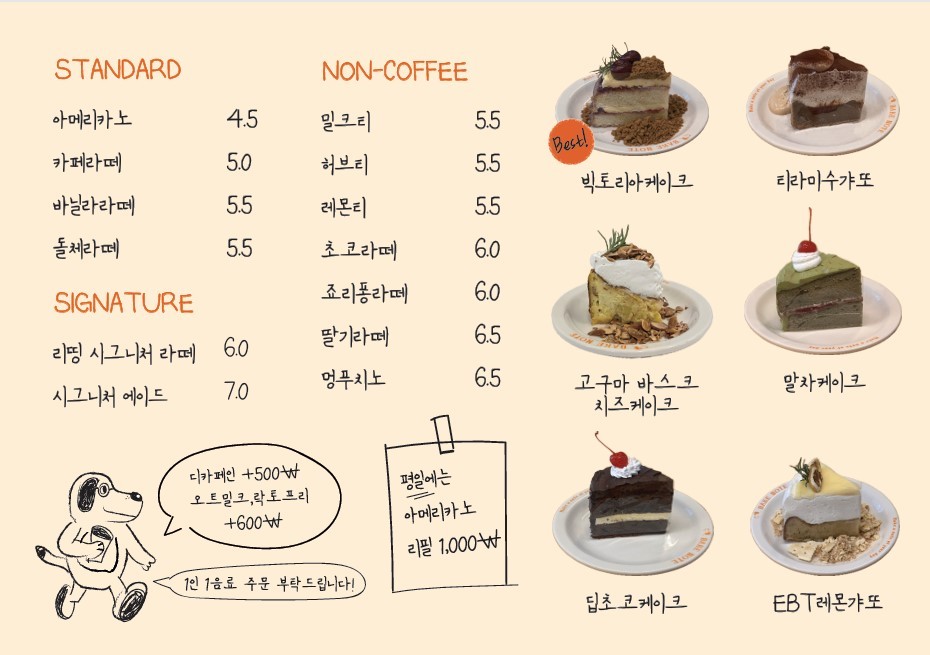 STANDARD
아메리카노 4.5
카페라떼 5.0
바닐라라떼 5.5
돌체라떼 5.5
SIGNATURE
리띵 시그니처 라떼 6.0
시그니처 에이드 7.0
NON-COFFEE
밀크티 5.5
허브티 5.5
레몬티 5.5
초코라떼 6.0
죠리퐁라떼 6.0
딸기라떼 6.5
멍푸치노 6.5
디카페인 +500₩
오트밀크,락토프리
+600₩
1인 1음료 주문 부탁드립니다!
평일에는
아메리카노
리필 1,000₩
Best!
빅토리아케이크
티라미수갸또
고구마 바스크
치즈케이크
말차케이크
딥초코케이크
EBT레몬갸또